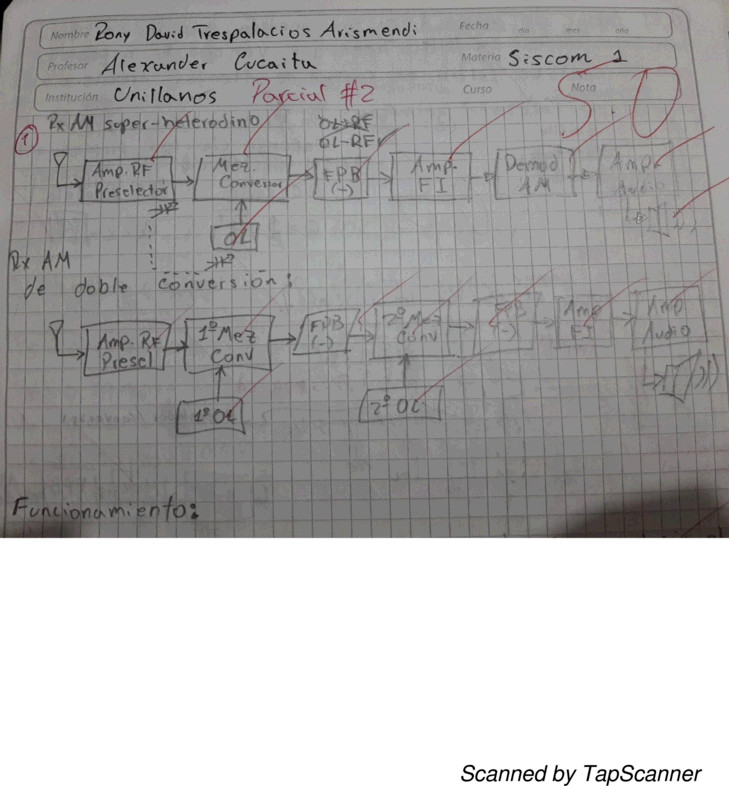 Nombre Rony David Trespalacios Arismendi Fecha dia mes año
Profesor Alexander Cucaita Materia Siscom 1
Institución Unillanos Parcial #2 Curso Nota 5.0
① Rx AM super-heterodino OL-RF
OL-RF
Amp. RF Preselector
Mez. Conversor
FPB (-)
Amp. FI
Demod AM
Amp. Audio
OL
Rx AM
de doble conversión:
Amp. RF Presel
1º Mez Conv
FPB (-)
2º Mez Conv
FPB (-)
Amp FI
Amp Audio
1º OL
2º OL
Funcionamiento:
Scanned by TapScanner